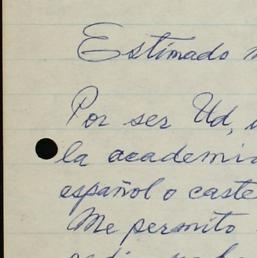 Estimado
Por ser Ud,
la academia
español o caste
Me permito